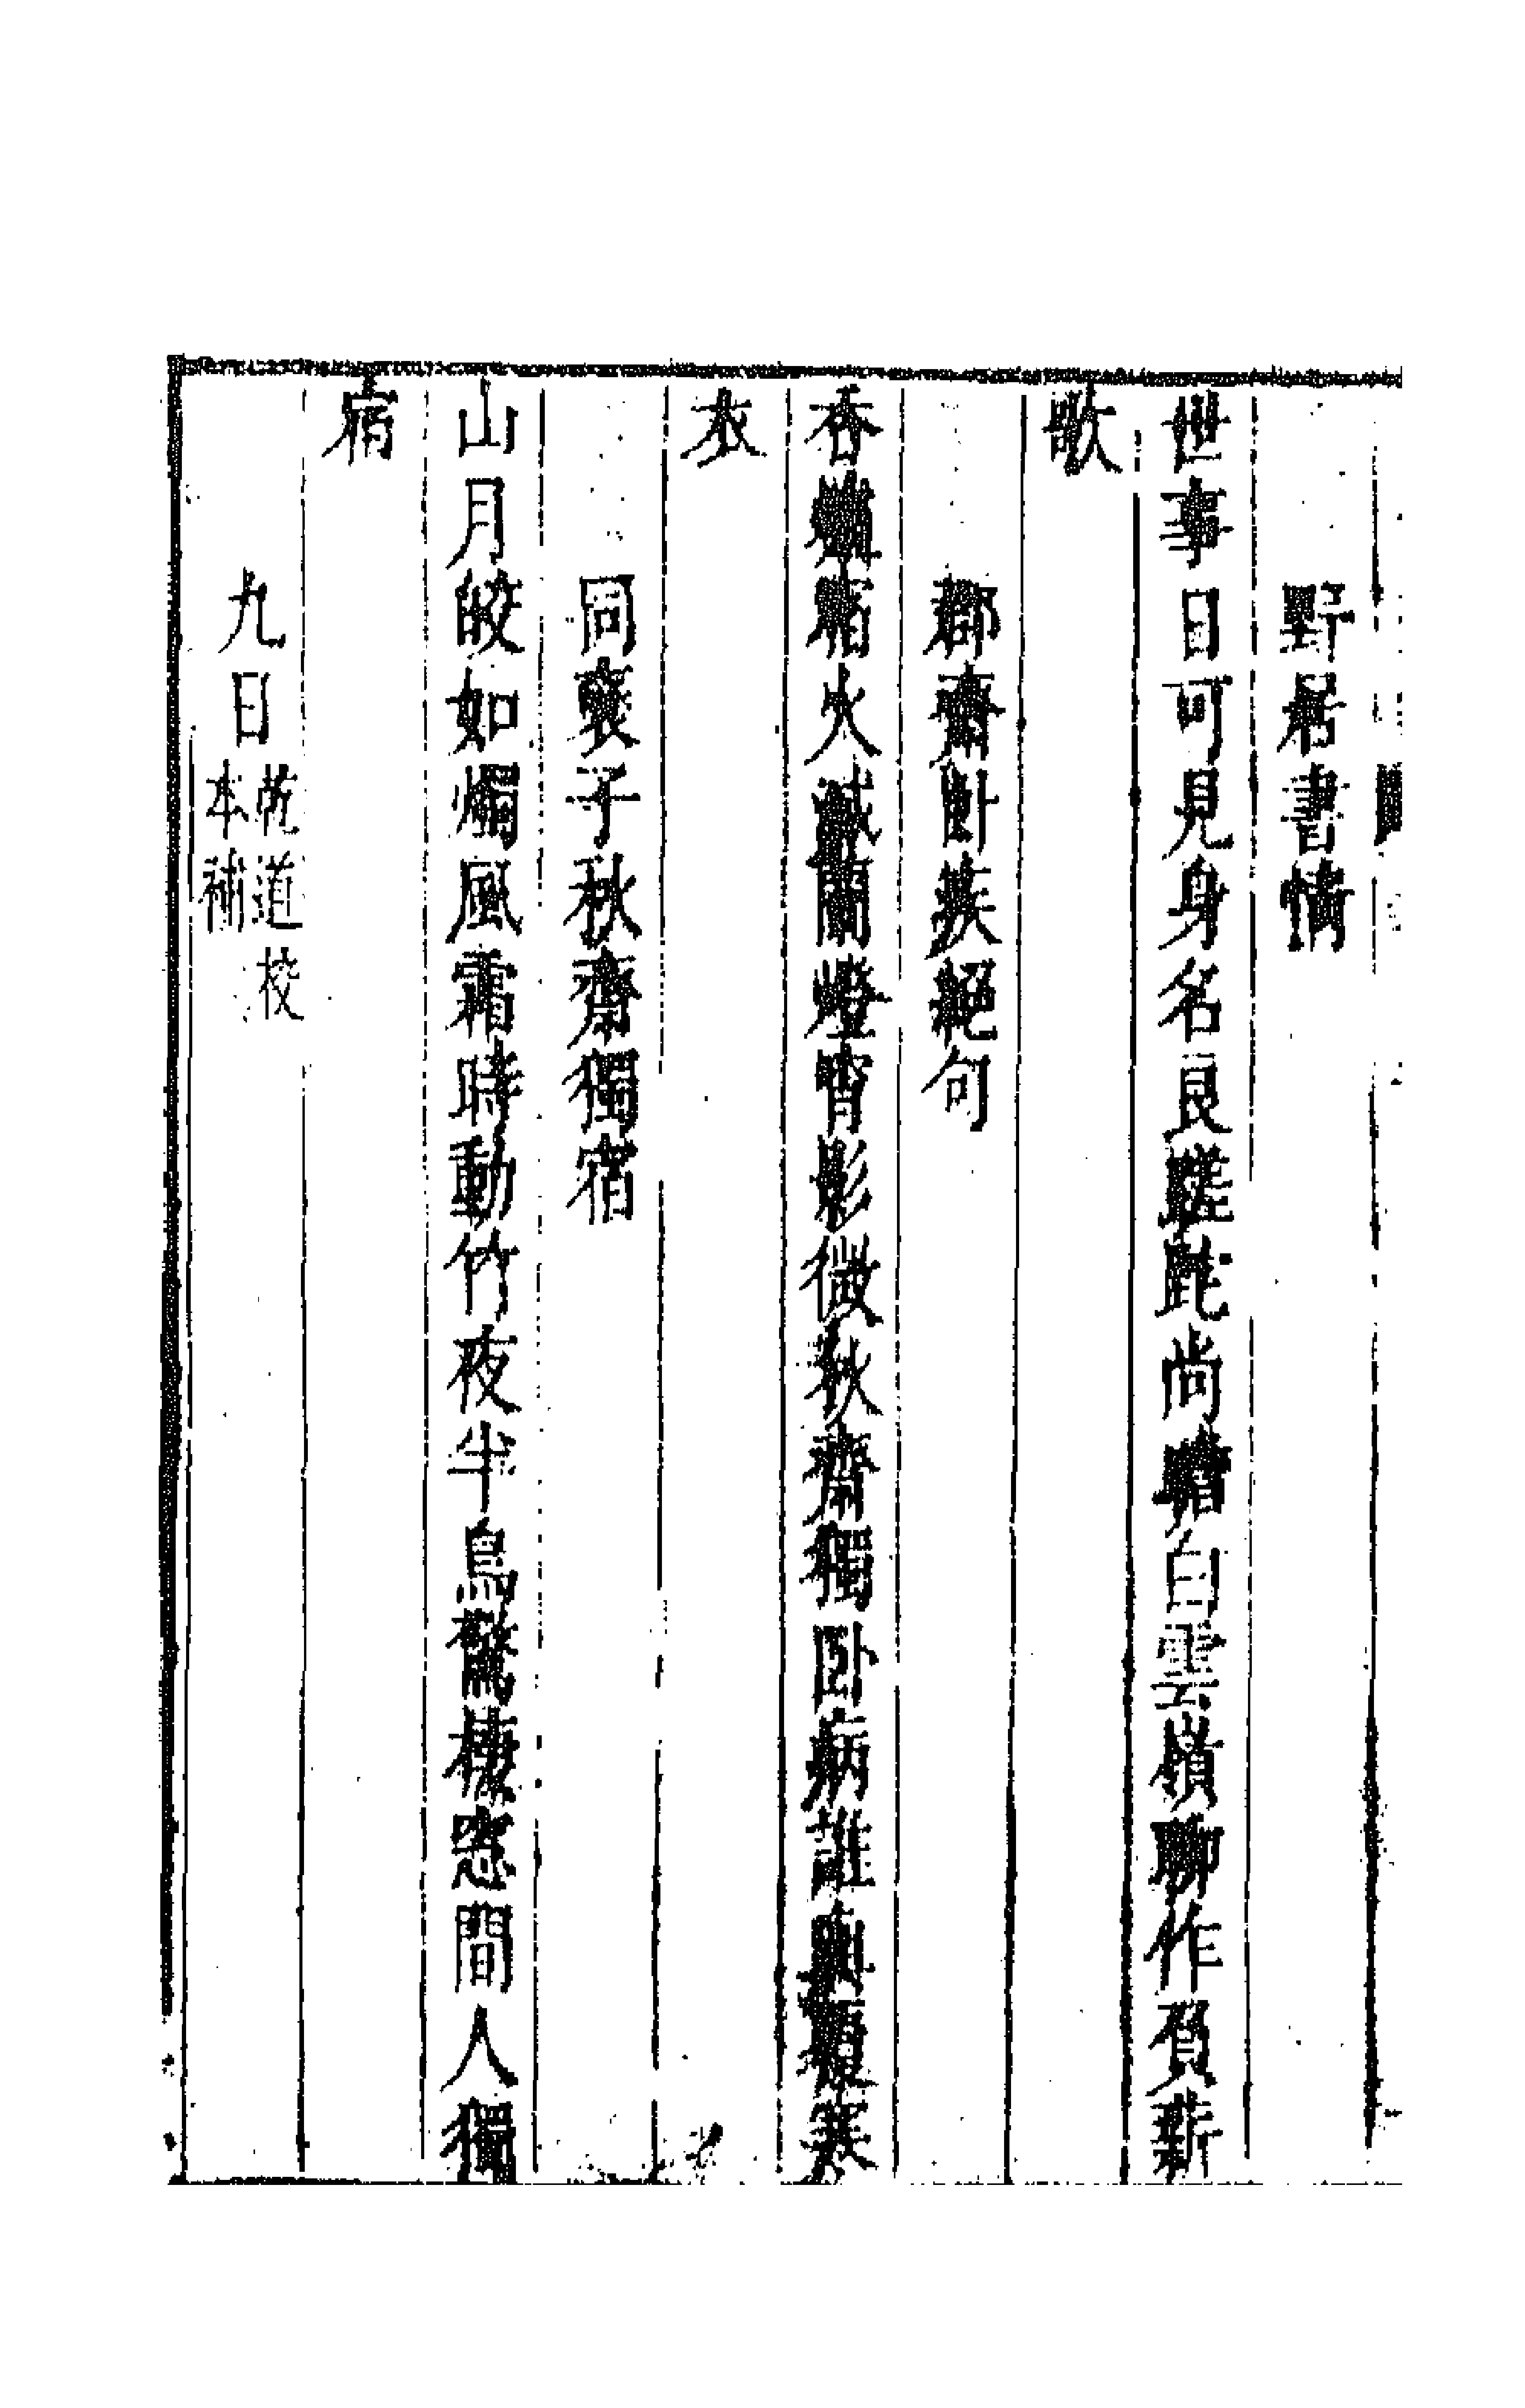 野居書情
世事日可見身名良蹉跎尚瞻白雲嶺聊作負薪
歌
郡齋卧疾絶句
香爐宿火滅蘭燈宵影微秋齋獨卧病誰與覆寒
衣
同褒子秋齋獨宿
山月皎如燭風霜時動竹夜半鳥驚棲窓間人獨
宿
九日乾道校本補